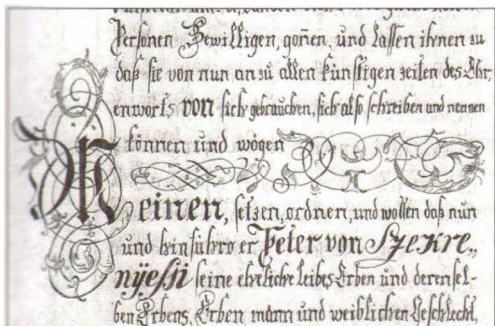 Persohnen Bewilligen, goñen, und lassen ihnen zu
daß sie von nun an zu allen künftigen zeiten des Ehr,
enworts von sich gebrauchen, sich also schreiben und nennen
können und mögen
Meinen, setzen, ordnen, und wollen daß nun
und hinführo er Peter von Szekre„
nyessy seine eheliche leibes Erben und derensel-
ben Erbens Erben mann und weiblichen Geschlecht,